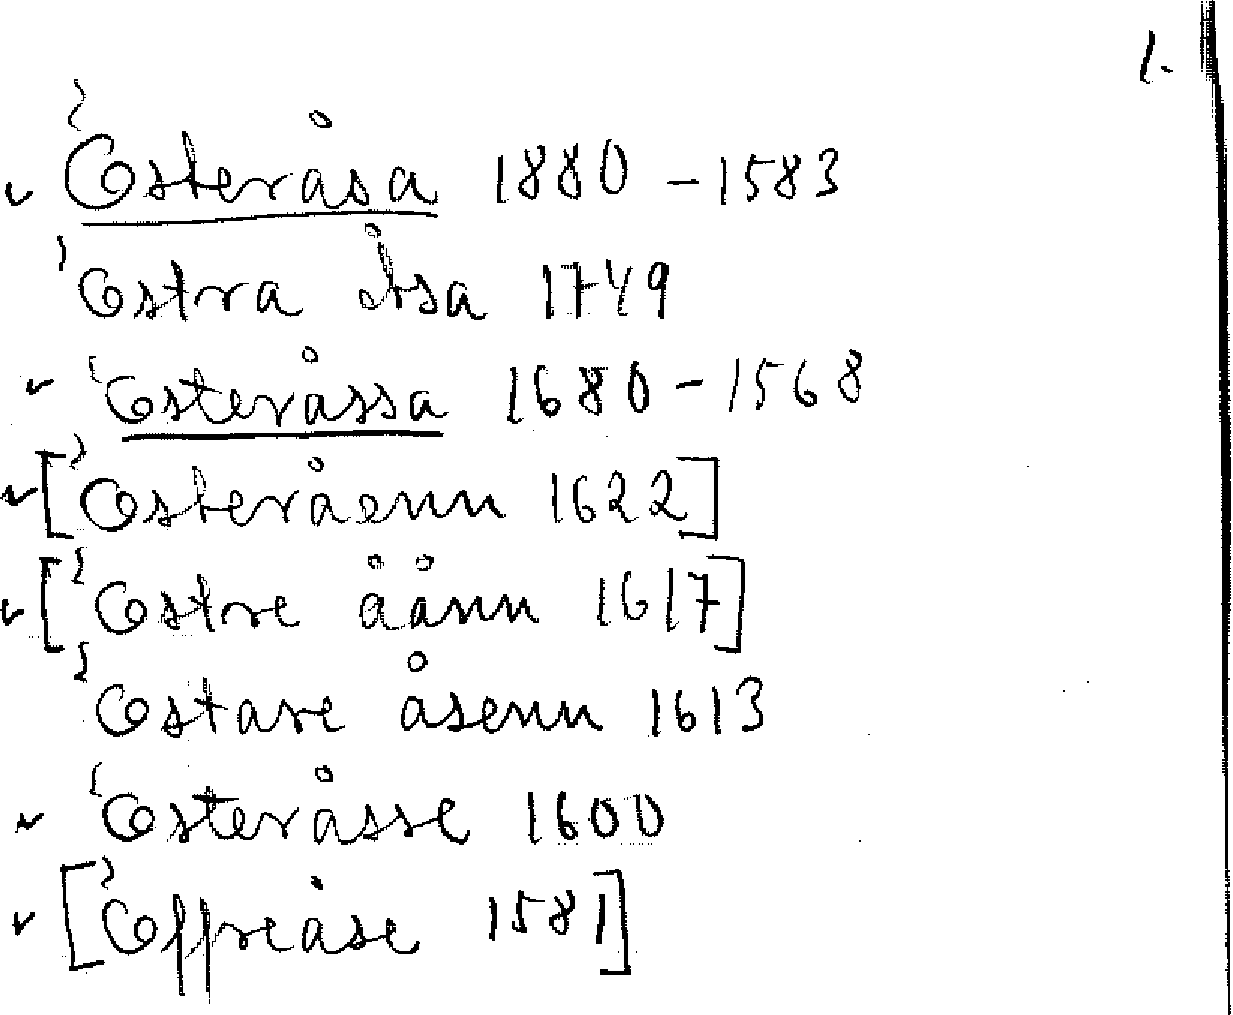 1.
Österåsa 1880-1583
Östra Åsa 1749
Österåssa 1680-1568
[Österåenn 1622]
[Östre åånn 1617]
Östare åsenn 1613
Österåsse 1600
[Öffreåse 1581]